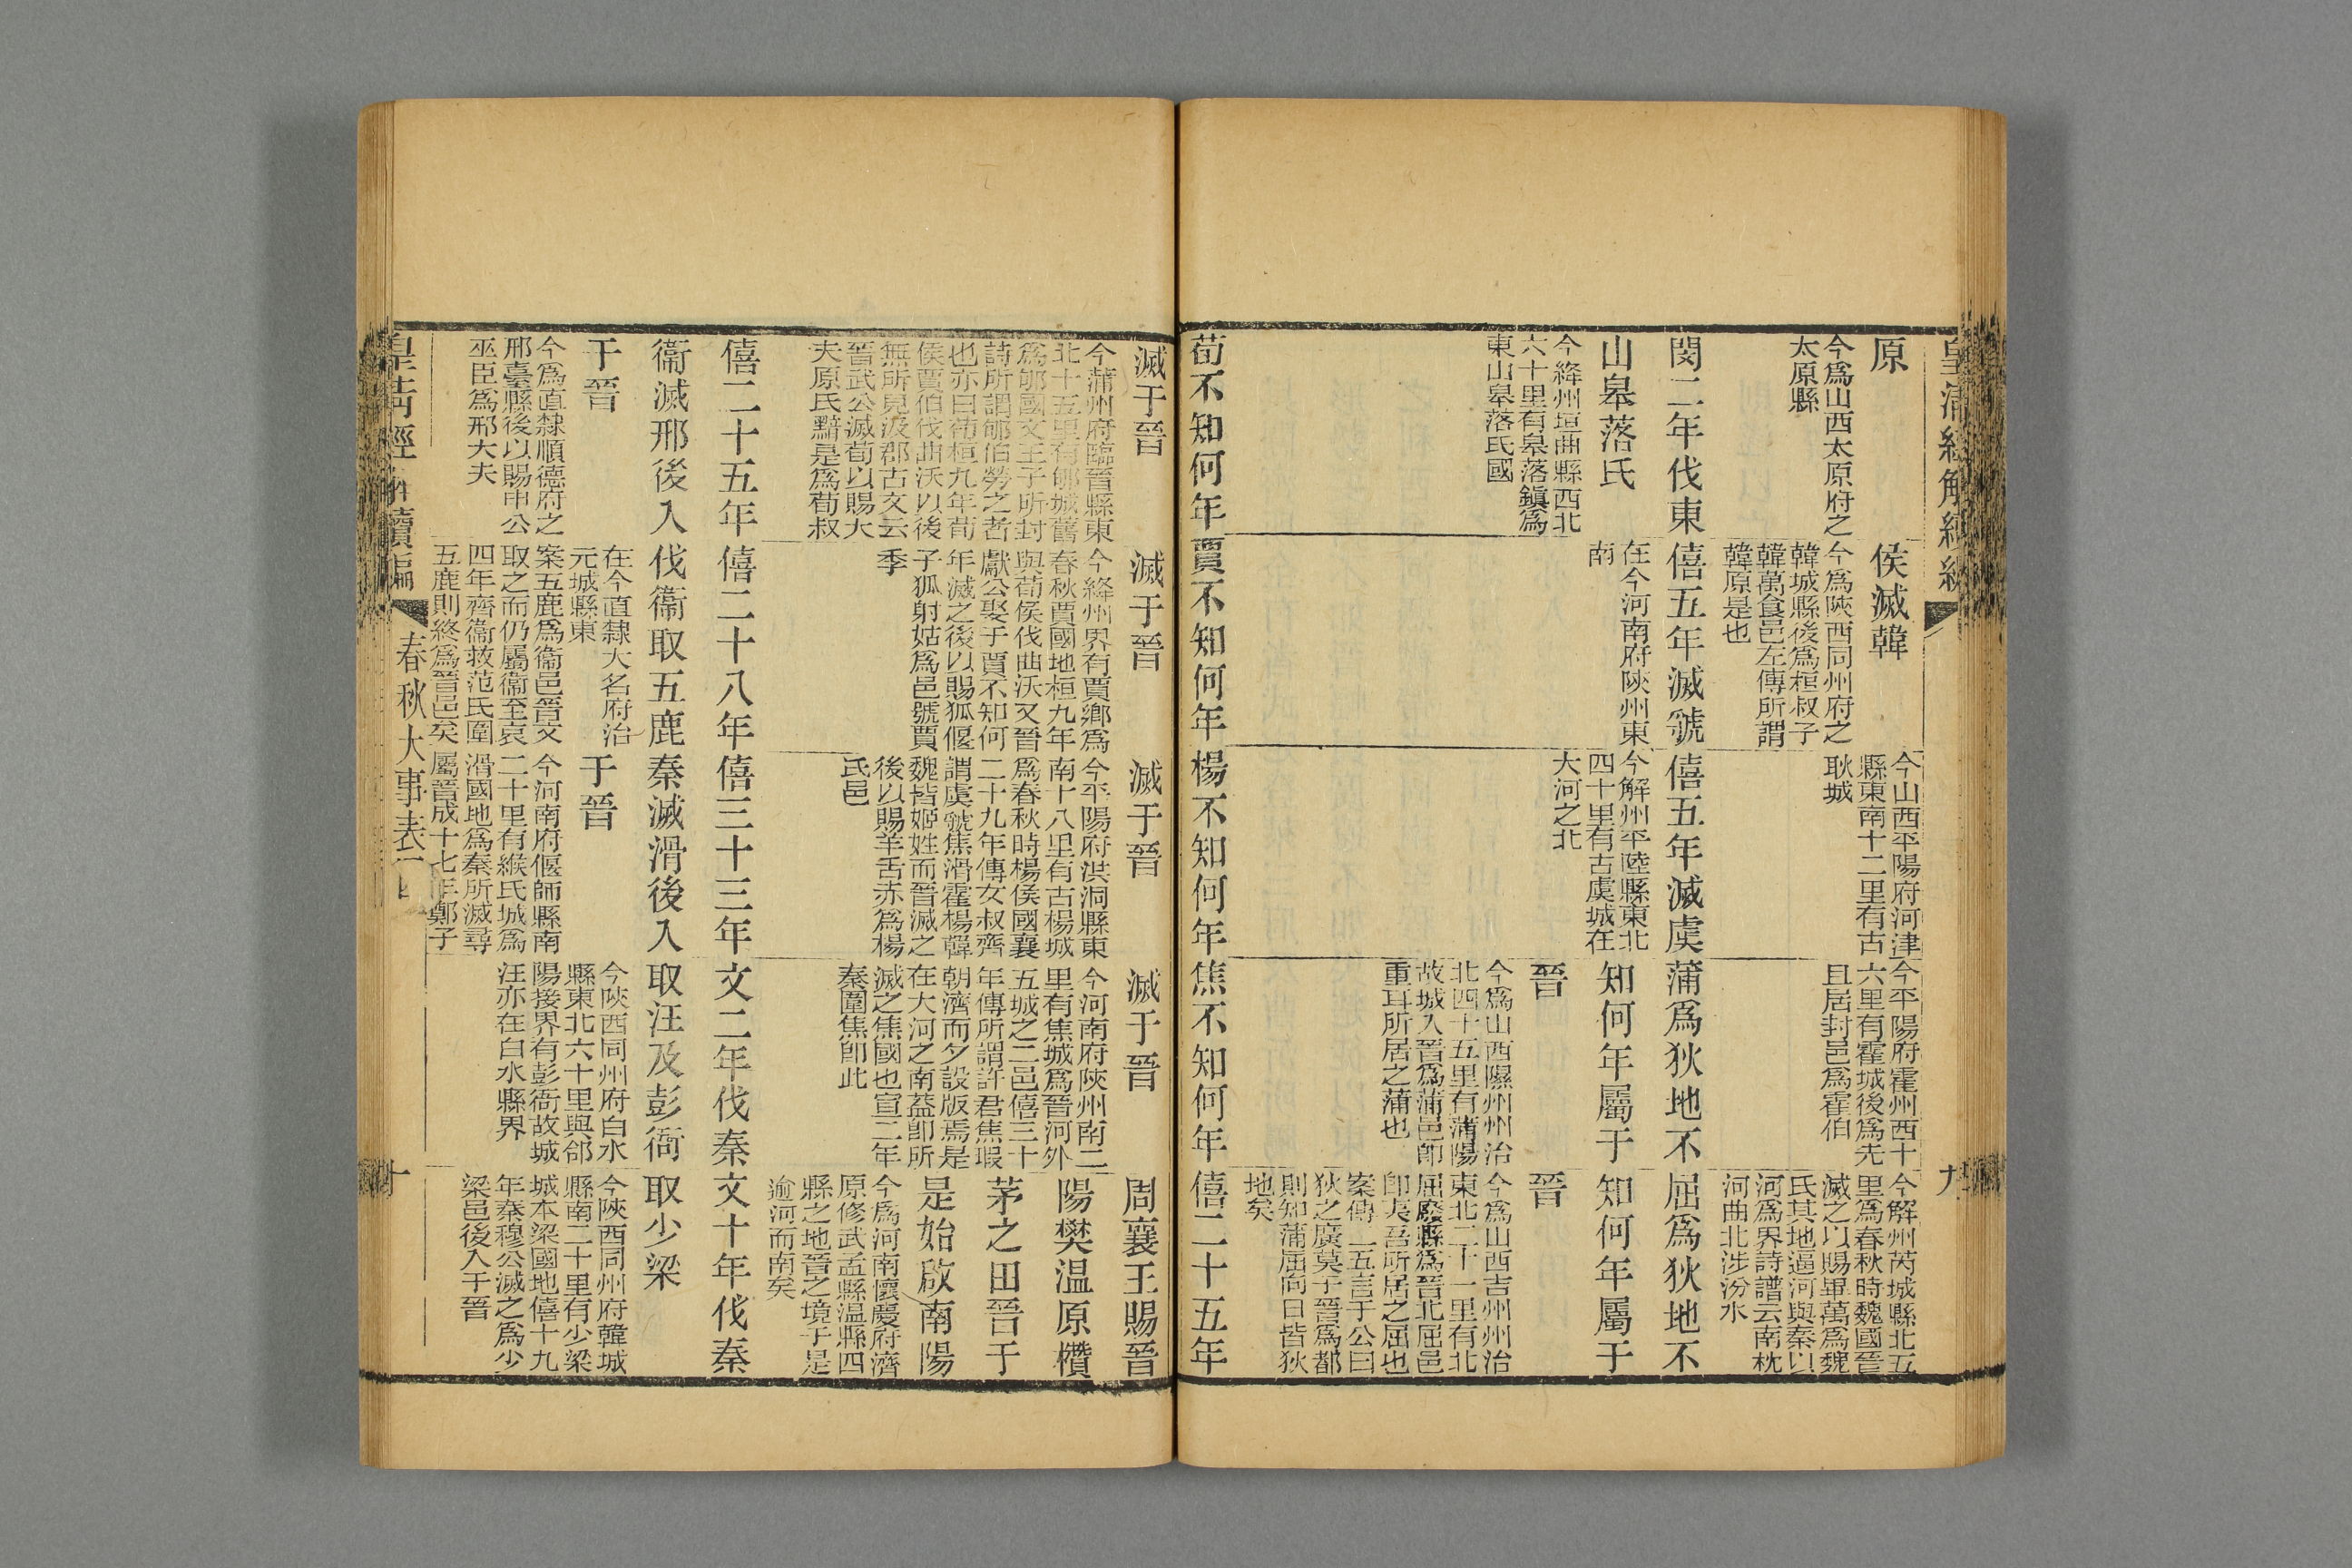 皇清經解續編
九
原
今爲山西太原府之
太原縣
侯滅韓
今爲陝西同州府之
韓城縣後爲桓叔子
韓萬食邑左傳所謂
韓原是也
今山西平陽府河津
縣東南十二里有古
耿城
今平陽府霍州西十
六里有霍城後爲先
且居封邑爲霍伯
今解州芮城縣北五
里爲春秋時魏國晉
滅之以賜畢萬爲魏
氏其地逼河與秦以
河爲界詩譜云南枕
河曲北涉汾水
閔二年伐東
山皋落氏
今絳州垣曲縣西北
六十里有皋落鎭爲
東山皋落氏國
僖五年滅虢
在今河南府陝州東
南
僖五年滅虞
今解州平陸縣東北
四十里有古虞城在
大河之北
蒲爲狄地不
知何年屬于
晉
今爲山西隰州州治
北四十五里有蒲陽
故城入晉爲蒲邑卽
重耳所居之蒲也
屈爲狄地不
知何年屬于
晉
今爲山西吉州州治
東北二十一里有北
屈廢縣爲晉北屈邑
卽夷吾所居之屈也
案傳二五言于公曰
狄之廣莫于晉爲都
則知蒲屈向日皆狄
地矣
荀不知何年
滅于晉
今蒲州府臨晉縣東
北十五里有郇城舊
爲郇國文王子所封
詩所謂郇伯勞之者
也亦曰荀桓九年荀
侯賈伯伐曲沃以後
無所見汲郡古文云
晉武公滅荀以賜大
夫原氏黯是爲荀叔
賈不知何年
滅于晉
今絳州界有賈鄉爲
春秋賈國地桓九年
與荀侯伐曲沃又晉
獻公娶于賈不知何
年滅之後以賜狐偃
子狐射姑爲邑號賈
季
楊不知何年
滅于晉
今平陽府洪洞縣東
南十八里有古楊城
爲春秋時楊侯國襄
二十九年傳女叔齊
謂虞虢焦滑霍楊韓
魏皆姬姓而晉滅之
後以賜羊舌赤爲楊
氏邑
焦不知何年
滅于晉
今河南府陝州南二
里有焦城爲晉河外
五城之二邑僖三十
年傳所謂許君焦瑕
朝濟而夕設版焉是
在大河之南葢卽所
滅之焦國也宣二年
秦圍焦卽此
僖二十五年
周襄王賜晉
陽樊温原欑
茅之田晉于
是始啟南陽
今爲河南懷慶府濟
原修武孟縣温縣四
縣之地晉之境于是
逾河而南矣
僖二十五年
衞滅邢後入
于晉
今爲直隸順德府之
邢臺縣後以賜申公
巫臣爲邢大夫
僖二十八年
伐衞取五鹿
在今直隸大名府治
元城縣東
案五鹿爲衞邑晉文
取之而仍屬衞至哀
四年齊衞救范氏圍
五鹿則終爲晉邑矣
僖三十三年
秦滅滑後入
于晉
今河南府偃師縣南
二十里有緱氏城爲
滑國地爲秦所滅尋
屬晉成十七年鄭子
文二年伐秦
取汪及彭衙
今陝西同州府白水
縣東北六十里與郃
陽接界有彭衙故城
汪亦在白水縣界
文十年伐秦
取少梁
今陝西同州府韓城
縣南二十里有少梁
城本梁國地僖十九
年秦穆公滅之爲少
梁邑後入于晉
皇清經解續編
春秋大事表四
十